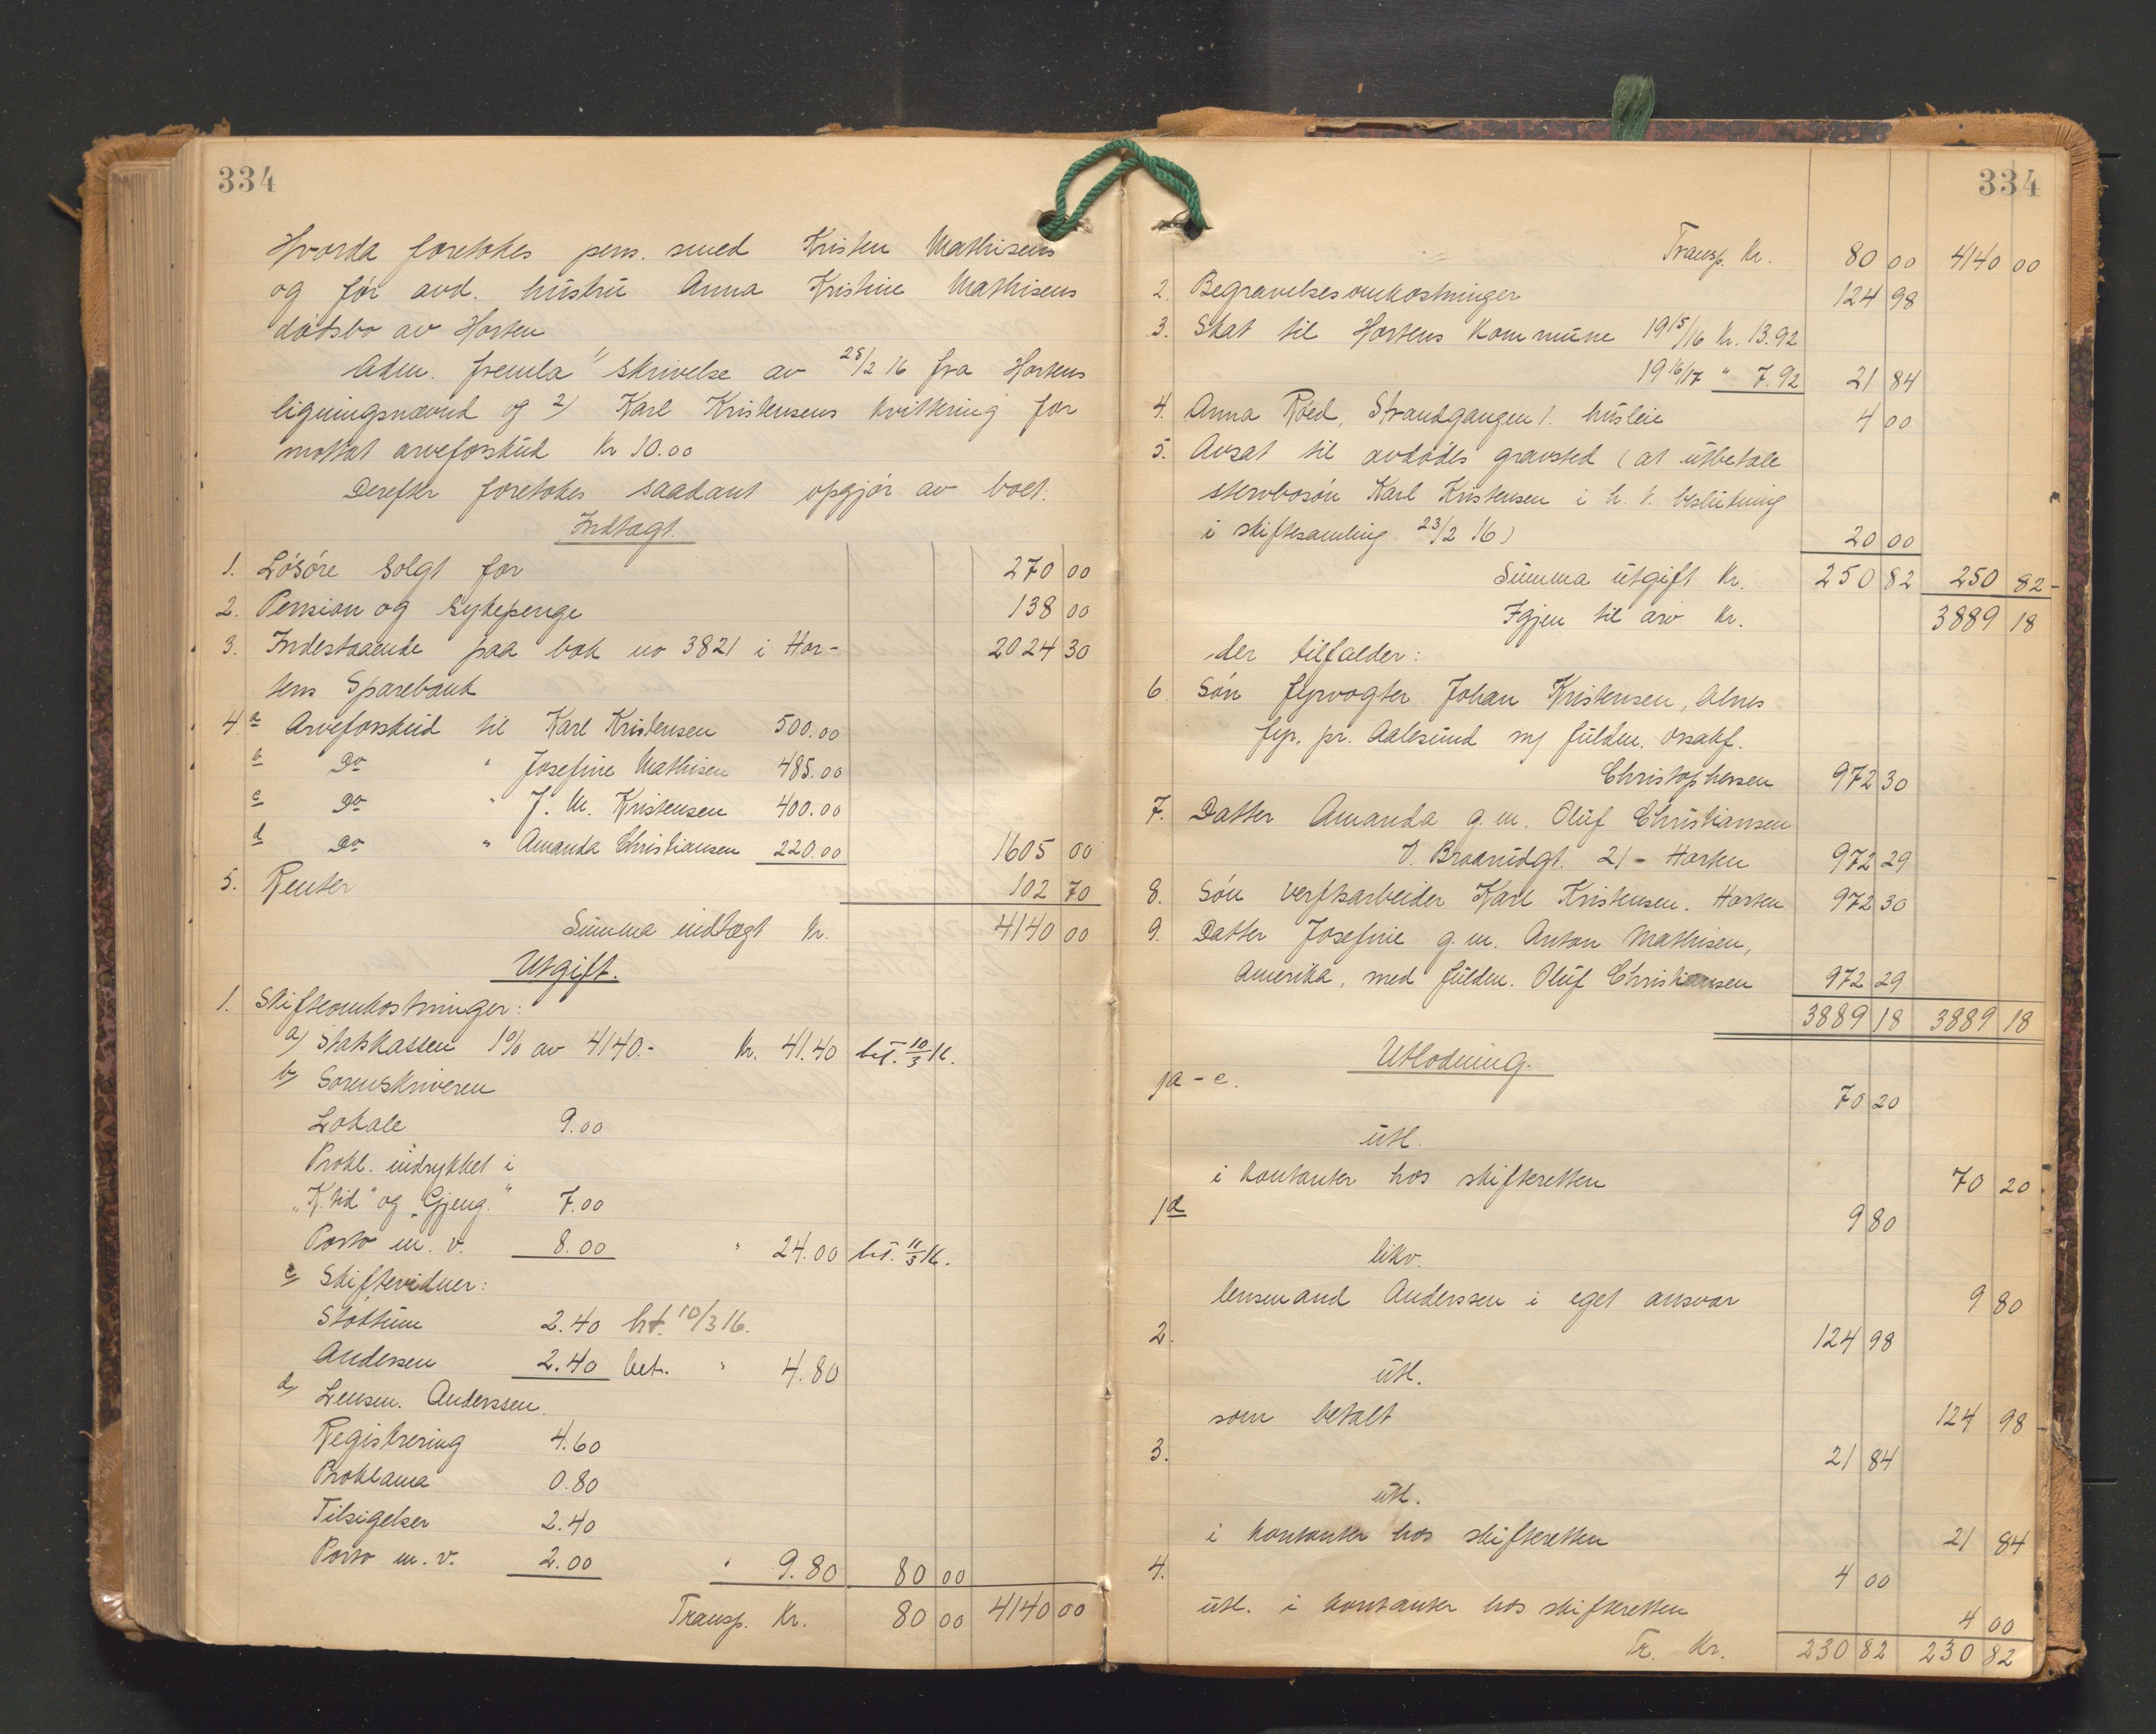 334
Hvorda foretokes pens. smed Kristen Mathisens
og før avd. hustru Anna Kristine Mathisens
dødsbo av Horten
Adm. fremla 1/ skrivelse av 28/2 16 fra Hortens
ligningsnævnd og 2) Karl Kristensens kvittering for
mottat arveforskud Kr 10.00
Derefter foretokes saadant opgjør av boet.
Indtægt.
1. Løsøre solgt for 270 00
2. Pension og sykepenge 138 00
3. Indestaaende paa bok no 3821 i Hor- 2024 30
tens Sparebank
4. a Arveforskud til Karl Kristensen 500.00
b Do " Josefine Mathisen 485.00
c Do " J. M. Kristensen 400.00
d Do " Amanda Christiansen 220.00 1605 00
5. Renter 102 70
Summa indtægt Kr. 4140 00
Utgift.
1. Skifteomkostninger:
a) Statskassen 1% av 4140.- Kr. 41.40 bet. 10/3 16.
b) Sorenskriveren
Lokale 9.00
Prokl. indrykket i
"K.tid" og "Gjeng." 7.00
Porto m. v. 8.00 " 24.00 bet. 11/3 16.
c) Skiftevidner:
Stoktum 2.40 bet. 10/3 16.
Andersen 2.40 bet. " 4.80
d) Lensm. Anderssen.
Registrering 4.60
Proklama 0.80
Tilsigelser 2.40
Porto m. v. 2.00 " 9.80 80 00
Transp. Kr. 80 00 4140 00
334
Transp. Kr. 80 00 4140 00
2. Begravelsesomkostninger 124 98
3. Skat til Hortens Kommune 1915/16 Kr. 13.92
1916/17 " 7.92 21 84
4. Anna Røed, Strandgangen 1. husleie 4 00
5. Avsat til avdødes gravsted (at utbetale
stervbosøn Karl Kristensen i h. t. beslutning
i skiftesamling 23/2 16) 20 00
Summa utgift Kr. 250 82 250 82-
Igjen til arv Kr. 3889 18
der tilfalder:
6. Søn fyrvogter Johan Kristensen, Alnes
fyr, pr. Aalesund m/ fuldm. orsakf.
Christophersen 972 30
7. Datter Amanda g. m. Oluf Christiansen
V. Braarudgt. 21 - Horten 972 29
8. Søn verftsarbeider Karl Kristensen. Horten 972 30
9. Datter Josefine g. m. Anton Mathisen,
Amerika, med fuldm. Oluf Christiansen 972 29
3889 18 3889 18
Utlodning.
1a - c. 70 20
utl.
i kontanter hos skifteretten 70 20
1d 9 80
likv.
lensmand Anderssen i eget ansvar 9 80
2. 124 98
utl.
som betalt 124 98
3. 21 84
utl.
i kontanter hos skifteretten 21 84
4. 4 00
utl. i kontanter hos skifteretten 4 00
Tr. Kr. 230 82 230 82